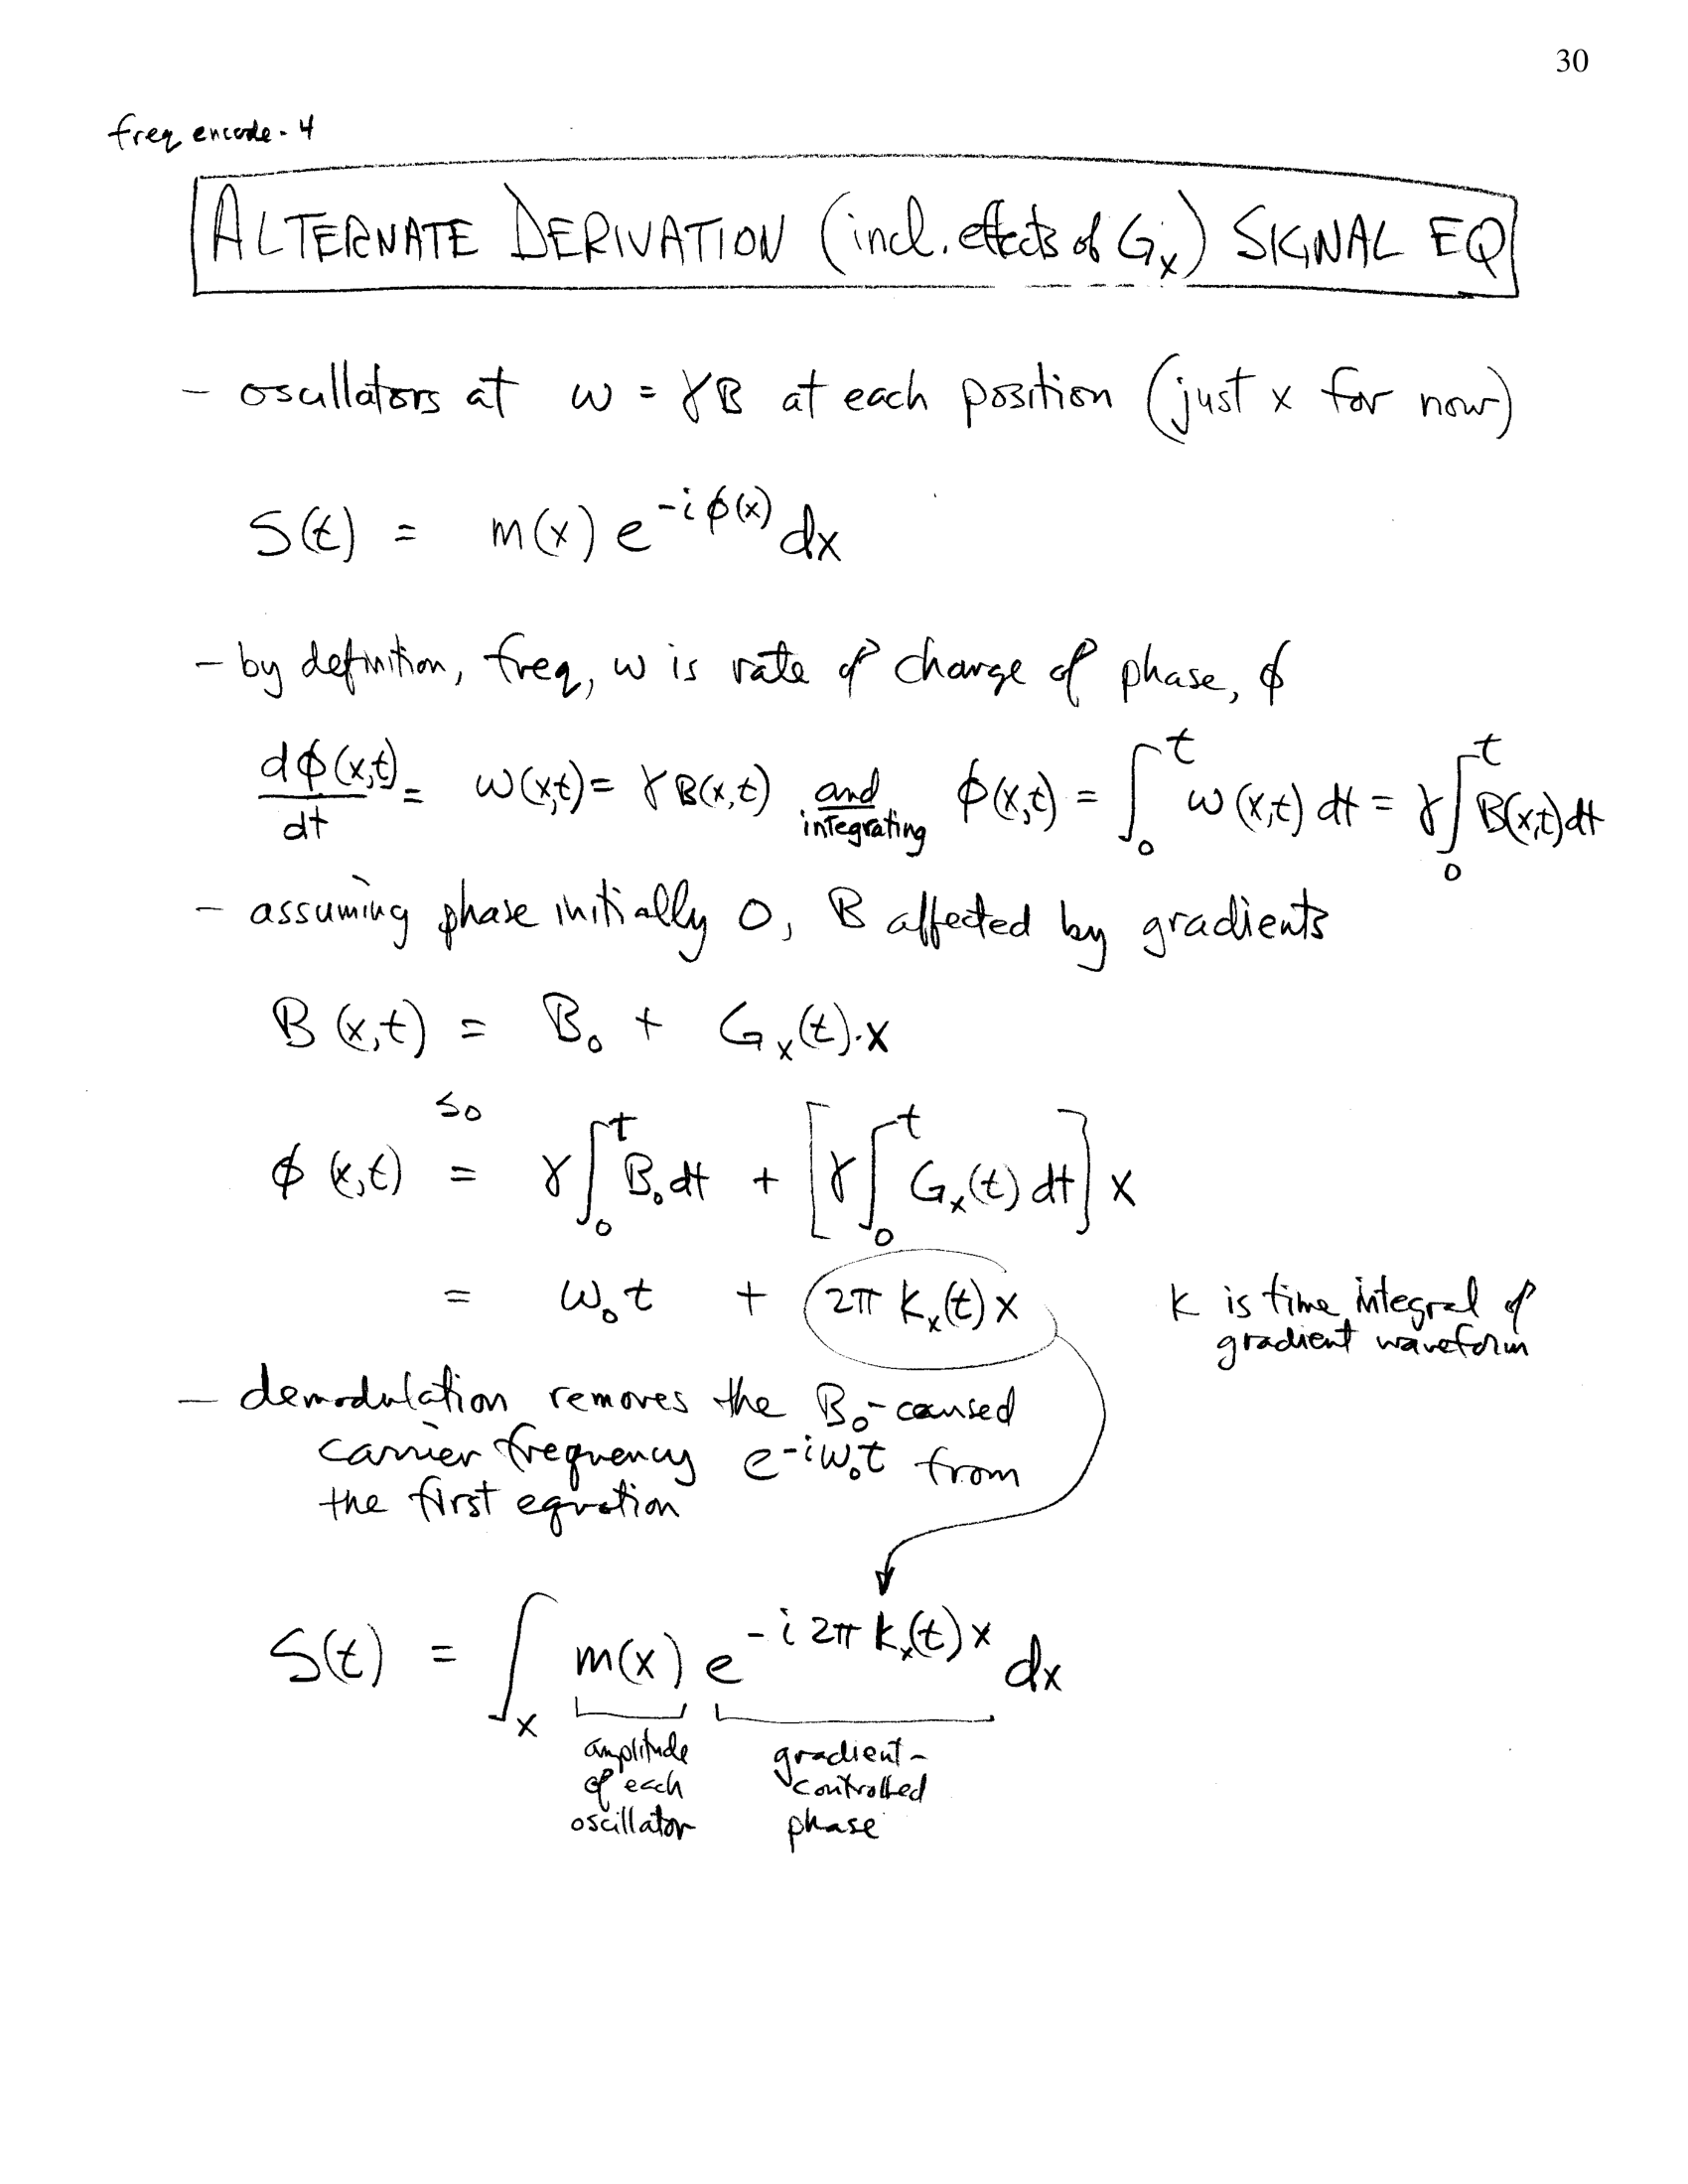 30
freq encode - 4
ALTERNATE DERIVATION (incl. effects of Gₓ) SIGNAL EQ
- oscillators at ω = γB at each position (just x for now)
S(t) = m(x) e^{-iϕ(x)} dx
- by definition, freq, ω is rate of change of phase, ϕ
dϕ(x,t)/dt = ω(x,t) = γB(x,t) and integrating ϕ(x,t) = ∫₀ᵗ ω(x,t) dt = γ∫₀ᵗ B(x,t) dt
- assuming phase initially 0, B affected by gradients
B(x,t) = B₀ + Gₓ(t)·x
so
ϕ(x,t) = γ∫₀ᵗ B₀ dt + [γ∫₀ᵗ Gₓ(t) dt] x
= ω₀t + 2π kₓ(t) x
k is time integral of
gradient waveform
- demodulation removes the B₀-caused
carrier frequency e^{-iω₀t} from
the first equation
S(t) = ∫ₓ m(x) e^{-i2π kₓ(t) x} dx
amplitude
of each
oscillator
gradient-
controlled
phase